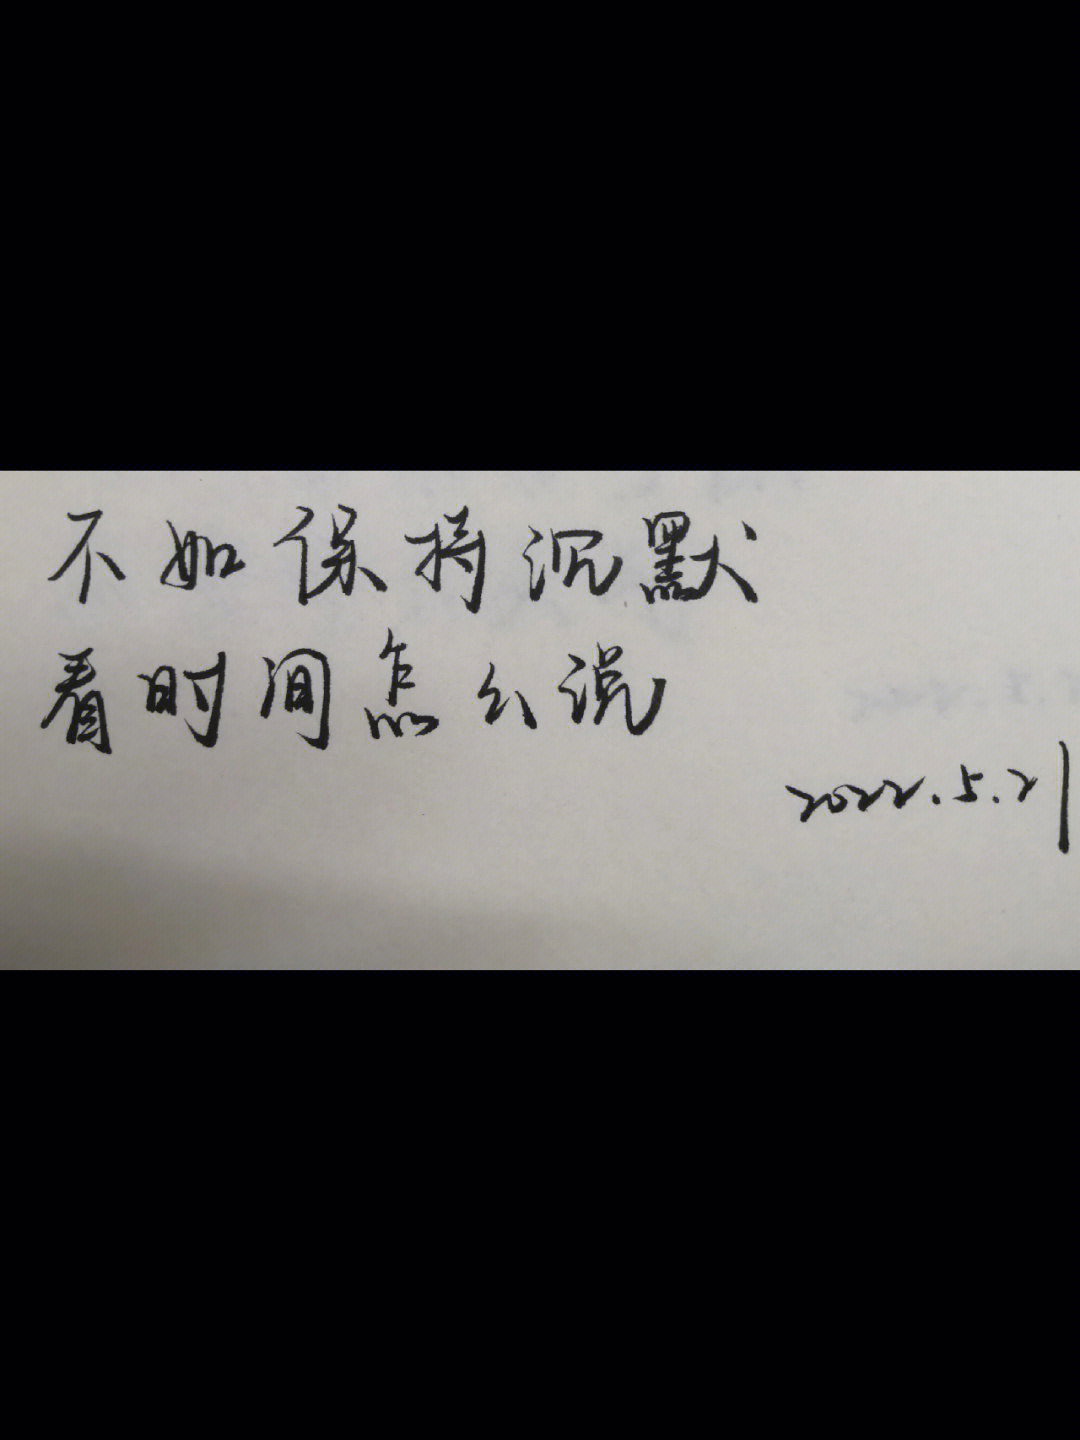 不如保持沉默
看时间怎么说
2022.5.21